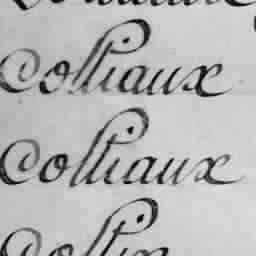 Colliaux
Colliaux
Collin